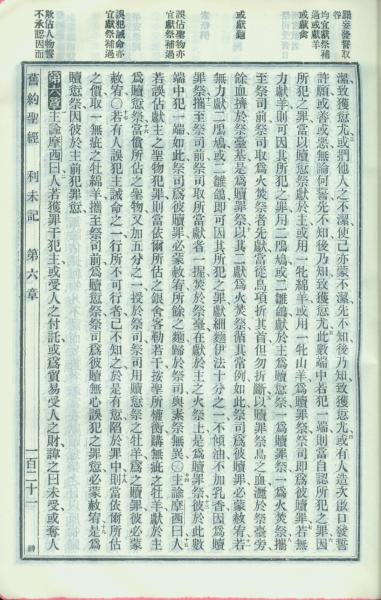 躅妄發誓取咎
均宜獻祭補過或獻羊
或獻禽
或獻麵
誤佔聖物亦宜獻祭補過
誤犯誡命亦宜獻祭補過
欺佔人物誓不承認因而
潔致獲愆尤或捫他人之不潔使己亦蒙不潔先不知後乃知致獲愆尤或有人造次啟口發誓
許願或善或惡無論何誓先不知後乃知致獲愆尤此數端中若犯一端則當自認所犯之罪因
所犯之罪當以贖愆祭獻於主或用一牝綿羊或用一牝山羊為贖罪祭祭司即為彼贖罪若無
力獻羊則可因其所犯之罪用二鳲鳩或二雛鴿獻於主為贖愆祭一為贖罪祭一為火焚祭攜
至祭司前祭司取為火焚祭者先獻當從鳥項折其首但勿折斷以贖罪祭鳥之血灑於祭臺旁
餘血擠於祭臺基是為贖罪祭以其二獻為火焚祭循其常例如此祭司為彼贖罪必蒙赦宥若
無力獻二鳲鳩或二雛鴿即可因其所犯之罪獻細麵伊法十分之一不傾油不加乳香因為贖
罪祭攜至祭司前祭司取所當獻者一握焚於祭臺在獻於主之火祭上是為贖罪祭彼於此數
端中犯一端如此祭司為彼贖罪必蒙赦宥所餘之麵歸於祭司與素祭無異○主諭摩西曰人
若誤佔獻主之聖物犯罪則當依爾所估之銀舍客勒若干按聖所權衡購無疵之牡羊獻於主
為贖愆祭當償所佔之聖物又加五分之一授於祭司祭司用贖愆祭之牡羊為之贖罪彼必蒙
赦宥○若有人誤犯主誡命之一行所不可行者己不知之於是有愆陷於罪中則當依爾所估
之價取一無疵之牡綿羊攜至祭司前為贖愆祭祭司為彼贖無心誤犯之罪愆必蒙赦宥是為
贖愆祭因彼於主前犯罪愆
第六章主諭摩西曰人若獲罪干犯主或受人之付託或為貿易受人之財諱之曰未受或奪人
舊約聖經 利未記 第六章 一百二十一